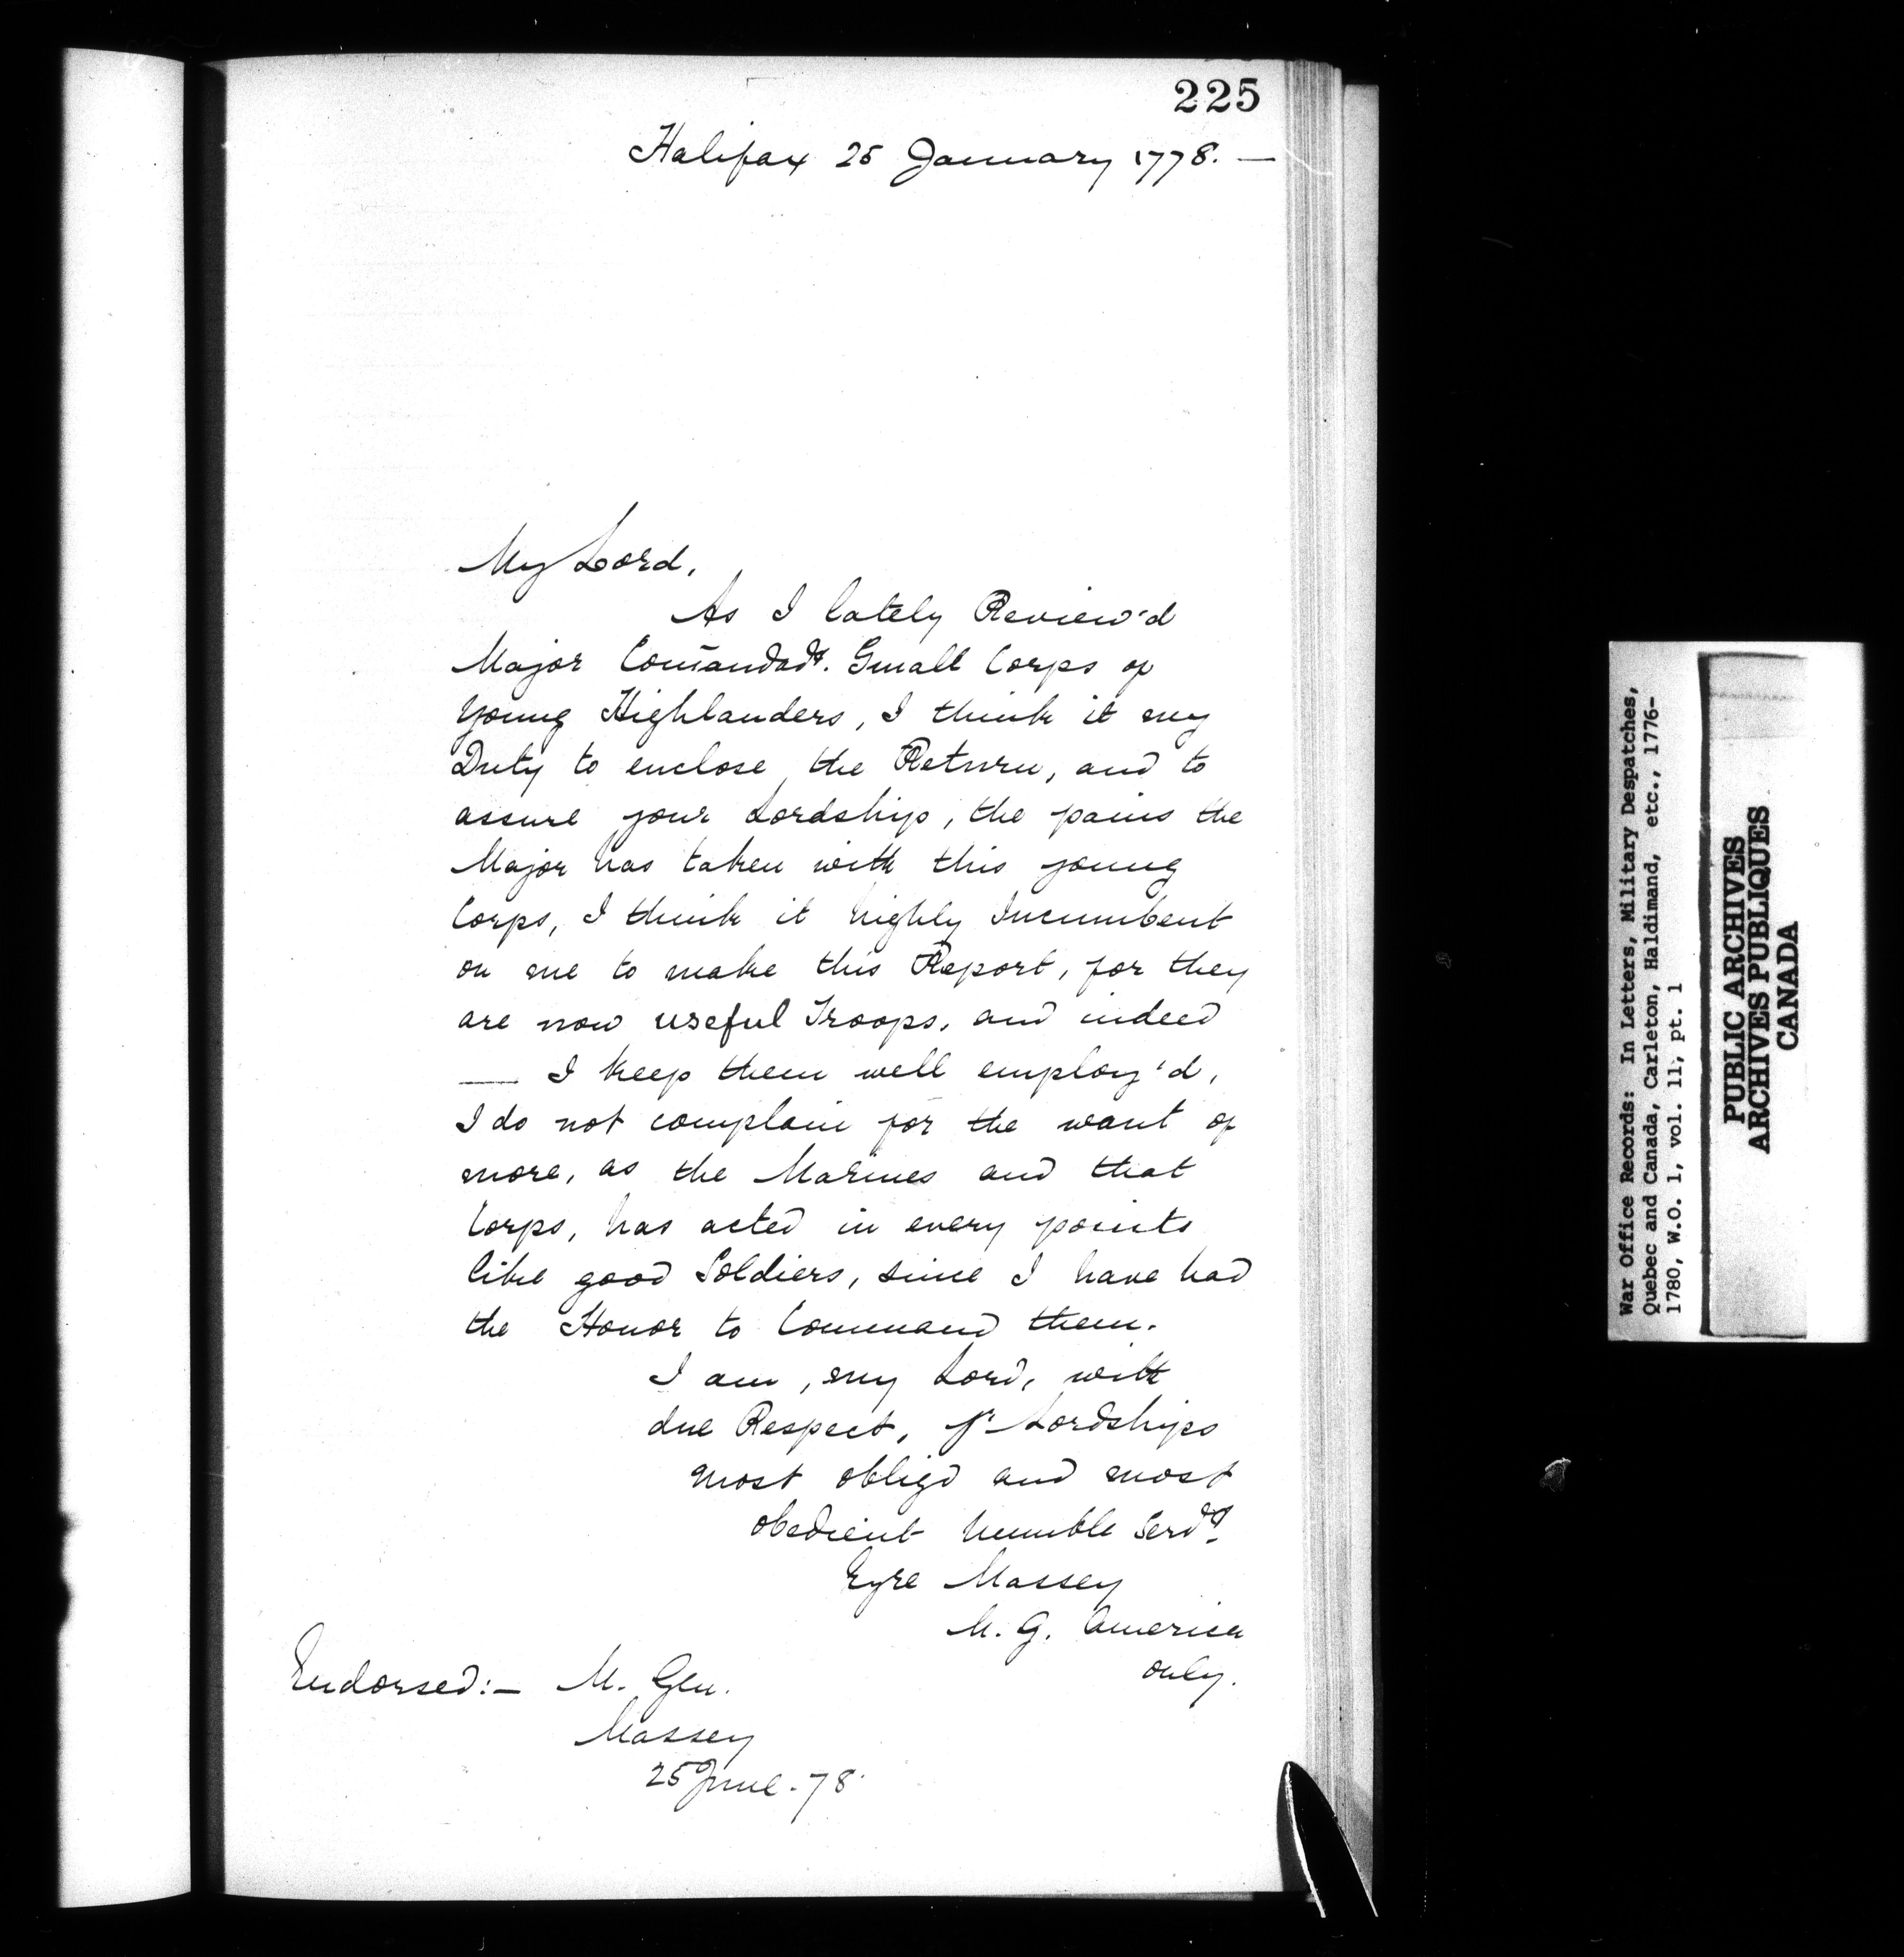 225
Halifax 25 January 1778. —
My Lord,
As I lately Review'd
Major Com̄andadt. Small Corps of
Young Highlanders, I think it my
Duty to enclose the Return, and to
assure your Lordship, the pains the
Major has taken with this young
Corps, I think it highly Incumbent
on me to make this Report, for they
are now useful Troops, and indeed
— I keep them well employ'd,
I do not complain for the want of
more, as the Marines and that
Corps, has acted in every points
like good Soldiers, since I have had
the Honor to Command them.
I am, my Lord, with
due Respect, yr Lordships
most obligd and most
obedient humble Servt.
Eyre Massey
M. G. America
only.
Endorsed:— M. Gen.
Massey
25 June - 78
War Office Records: In Letters, Military Despatches,
Quebec and Canada, Carleton, Haldimand, etc., 1776-
1780, W.O. 1, vol. 11, pt. 1
PUBLIC ARCHIVES
ARCHIVES PUBLIQUES
CANADA